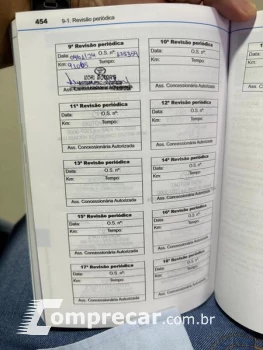 454 9-1. Revisão periódica
9ª Revisão periódica
Data: O.S. nº:
Km: Tempo:
10ª Revisão periódica
Data: O.S. nº:
Km: Tempo:
Ass. Concessionária Autorizada
11ª Revisão periódica
Data: O.S. nº:
Km: Tempo:
Ass. Concessionária Autorizada
12ª Revisão periódica
Data: O.S. nº:
Km: Tempo:
Ass. Concessionária Autorizada
13ª Revisão periódica
Data: O.S. nº:
Km: Tempo:
Ass. Concessionária Autorizada
14ª Revisão periódica
Data: O.S. nº:
Km: Tempo:
Ass. Concessionária Autorizada
15ª Revisão periódica
Data: O.S. nº:
Km: Tempo:
Ass. Concessionária Autorizada
16ª Revisão periódica
Data: O.S. nº:
Km: Tempo:
Ass. Concessionária Autorizada
17ª Revisão periódica
Data: O.S. nº:
Km: Tempo:
Ass. Concessionária Autorizada
18ª Revisão periódica
Data: O.S. nº:
Km: Tempo:
Ass. Concessionária Autorizada
Comprecar.com.br